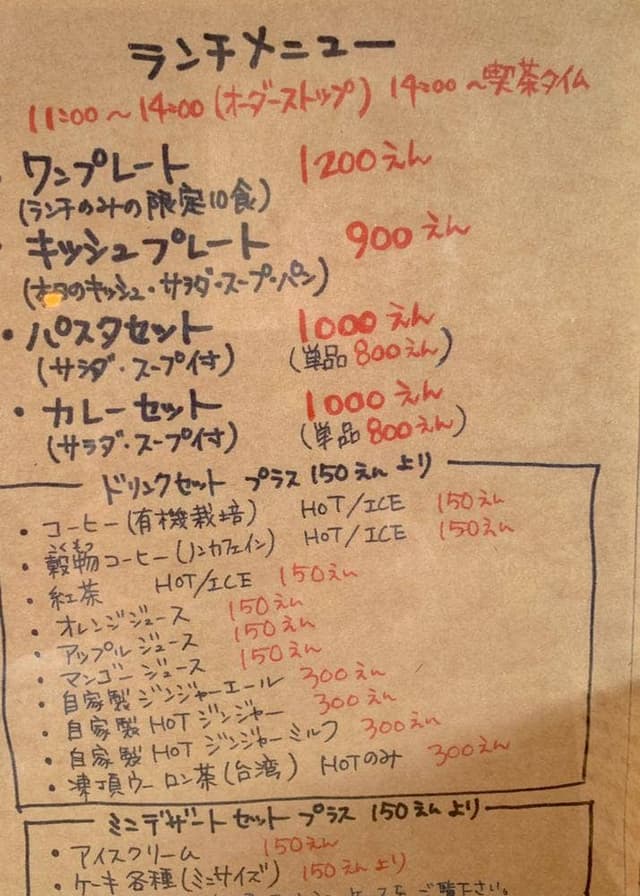 ランチメニュー
11:00～14:00(オーダーストップ) 14:00～喫茶タイム
・ワンプレート 1200えん
(ランチのみの限定10食)
・キッシュプレート 900えん
(本日のキッシュ・サラダ・スープ・パン)
・パスタセット 1000えん
(サラダ・スープ付) (単品800えん)
・カレーセット 1000えん
(サラダ・スープ付) (単品800えん)
ドリンクセット プラス150えんより
・コーヒー(有機栽培) HOT/ICE 150えん
・穀物コーヒー(ノンカフェイン) HOT/ICE 150えん
・紅茶 HOT/ICE 150えん
・オレンジジュース 150えん
・アップルジュース 150えん
・マンゴージュース 150えん
・自家製ジンジャーエール 300えん
・自家製HOTジンジャー 300えん
・自家製HOTジンジャーミルク 300えん
・凍頂ウーロン茶(台湾) HOTのみ 300えん
ミニデザートセット プラス150えんより
・アイスクリーム 150えん
・ケーキ各種(ミニサイズ) 150えんより
ご覧下さい。